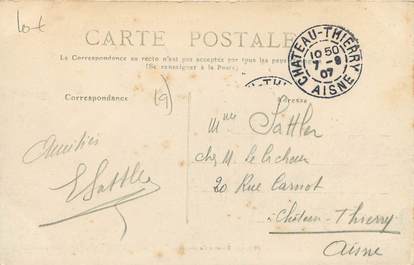 10 €
CARTE POSTALE
La Correspondance au recto n'est pas acceptée par tous les pays
(Se renseigner à la Poste)
CHATEAU-THIERRY
10 50
7 - 9
07
AISNE
Correspondance
(9)
Adresse
Mme Sattler
chez M. le
20 Rue Carnot
Château-Thierry
Aisne
Amitiés
E Sattler